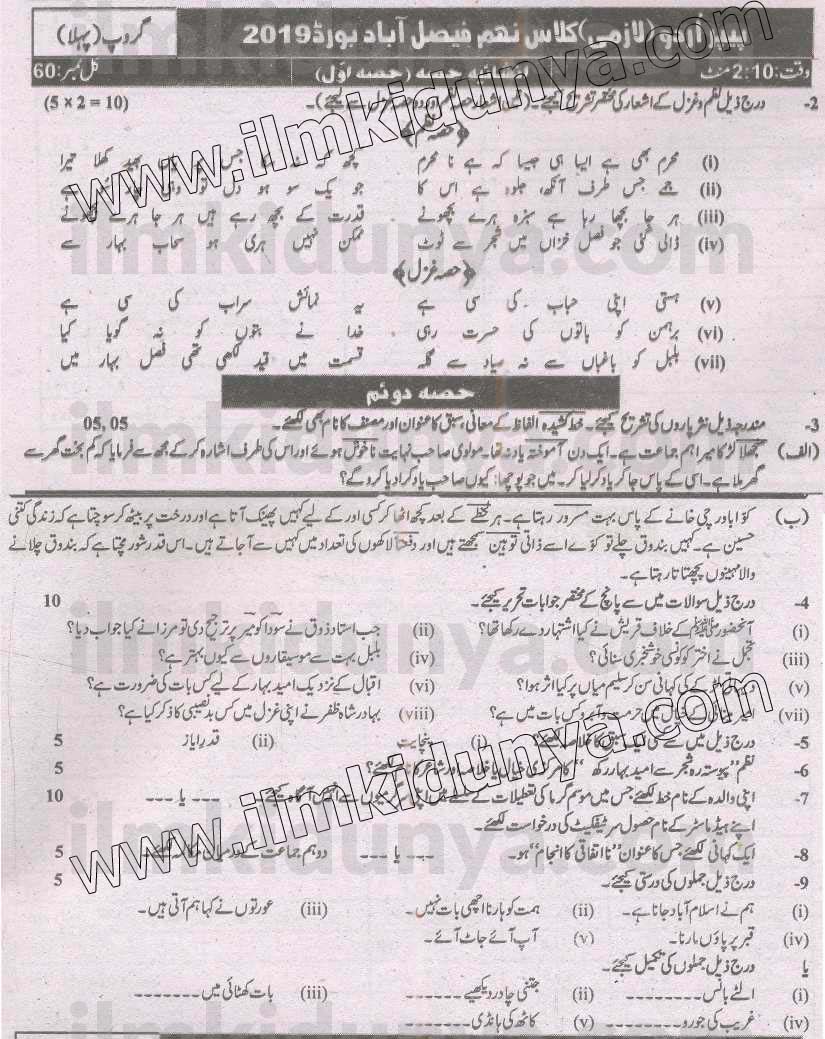 پیپر اُردو (لازمی) کلاس نہم فیصل آباد بورڈ 2019
گروپ (پہلا)
وقت: 2:10 منٹ حصہ (حصہ اوّل) کل نمبر: 60
2- درج ذیل نظم و غزل کے اشعار کی مختصر تشریح کیجئے۔ (5 × 2 = 10)
(i) محرم بھی ہے ایسا ہی جیسا کہ ہے نا محرم کچھ کہہ نہ جس پر بھید کھلا تیرا
(ii) جمے جس طرف آنکھ، جلوہ ہے اس کا جو یک سو ہو دل تو ہے
(iii) ہر جا بچھا رہا ہے سبزہ ہرے بچھونے قدرت کے بچھ رہے ہیں ہر جا ہرے بچھونے
(iv) ڈالی گئی جو فصل خزاں میں شجر سے ٹوٹ ممکن نہیں ہری ہو سحاب بہار سے
﴿حصہ غزل﴾
(v) ہستی اپنی حباب کی سی ہے یہ نمائش سراب کی سی ہے
(vi) برہمن کو باتوں کی حسرت رہی خدا نے بتوں کو نہ گویا کیا
(vii) بلبل کو باغباں سے نہ صیاد سے گلہ قسمت میں قید لکھی تھی فصل بہار میں
حصہ دوئم
3- مندرجہ ذیل نثر پاروں کی تشریح کیجئے۔ خط کشیدہ الفاظ کے معانی، سبق کا عنوان اور مصنف کا نام بھی لکھئے۔ 05, 05
(الف) منجھلا لڑکا میرا ہم جماعت ہے۔ ایک دن آموختہ یاد نہ تھا۔ مولوی صاحب نہایت ناخوش ہوئے اور اس کی طرف اشارہ کر کے مجھ سے فرمایا کہ کم بخت گھر سے
گھر ملا ہے۔ اسی کے پاس جا کر یاد کر لیا کر۔ میں جو پوچھا: کیوں صاحب یاد کرا دیا کرو گے؟
(ب) کوّا باورچی خانے کے پاس بہت مسرور رہتا ہے۔ ہر لحظے کے بعد کچھ اٹھا کر کسی اور کے لیے کہیں پھینک آتا ہے اور درخت پر بیٹھ کر سوچتا ہے کہ زندگی کتنی
حسین ہے۔ کہیں بندوق چلے تو کوّے اسے ذاتی توہین سمجھتے ہیں اور دفعتاً لاکھوں کی تعداد میں کہیں سے آ جاتے ہیں۔ اس قدر شور مچتا ہے کہ بندوق چلانے
والا مہینوں پچھتاتا رہتا ہے۔
4- درج ذیل سوالات میں سے پانچ کے مختصر جوابات تحریر کیجئے۔ 10
(i) آنحضور ﷺ کے خلاف قریش نے کیا اشتہار دے رکھا تھا؟ (ii) جب استاد ذوق نے سودا کو میر پر ترجیح دی تو مرزا نے کیا جواب دیا؟
(iii) تجمل نے اختر کو کونسی خوشخبری سنائی؟ (iv) بلبل بہت سے موسیقاروں سے کیوں بہتر ہے؟
(v) کی کہانی سن کر سلیم میاں پر کیا اثر ہوا؟ (vi) اقبال کے نزدیک امید بہار کے لیے کس بات کی ضرورت ہے؟
(vii) کے خیال میں حرمت و آبرو کس بات میں ہے؟ (viii) بہادر شاہ ظفر نے اپنی غزل میں کس بدنصیبی کا ذکر کیا ہے؟
5- درج ذیل میں سے کسی ایک سبق کا خلاصہ لکھئے؟ (i) پنچایت (ii) قدر ایاز 5
6- نظم "پیوستہ رہ شجر سے امید بہار رکھ" کا مرکزی خیال یا خلاصہ اور شاعر کا نام لکھئے؟ 5
7- اپنی والدہ کے نام خط لکھئے جس میں موسم گرما کی تعطیلات کے سے انہیں آگاہ کیجئے۔ --- یا --- 10
اپنے ہیڈ ماسٹر کے نام حصول سرٹیفکیٹ کی درخواست لکھئے۔
8- ایک کہانی لکھئے جس کا عنوان "نا اتفاقی کا انجام" ہو۔ --- یا --- دو ہم جماعت کے درمیان مکالمہ لکھئے۔ 5
9- درج ذیل جملوں کی درستی کیجئے۔ 5
(i) ہم نے اسلام آباد جانا ہے۔ (ii) ہمت کو ہارنا اچھی بات نہیں۔ (iii) عورتوں نے کہا ہم آتی ہیں۔
(iv) قبر پر پاؤں مارنا۔ (v) آپ آئے جاٹ آئے۔
یا درج ذیل جملوں کی تکمیل کیجئے۔
(i) الٹے بانس------- (ii) جتنی چادر دیکھیے------- (iii) بات کھٹائی میں-------
(iv) غریب کی جورو------- (v) کاٹھ کی ہانڈی-------
www.ilmkidunya.com
www.ilmkidunya.com
ilmkidunya.com
ilmkidunya.com
ilmkidunya.com
ilmkidunya.com
ilmkidunya.com